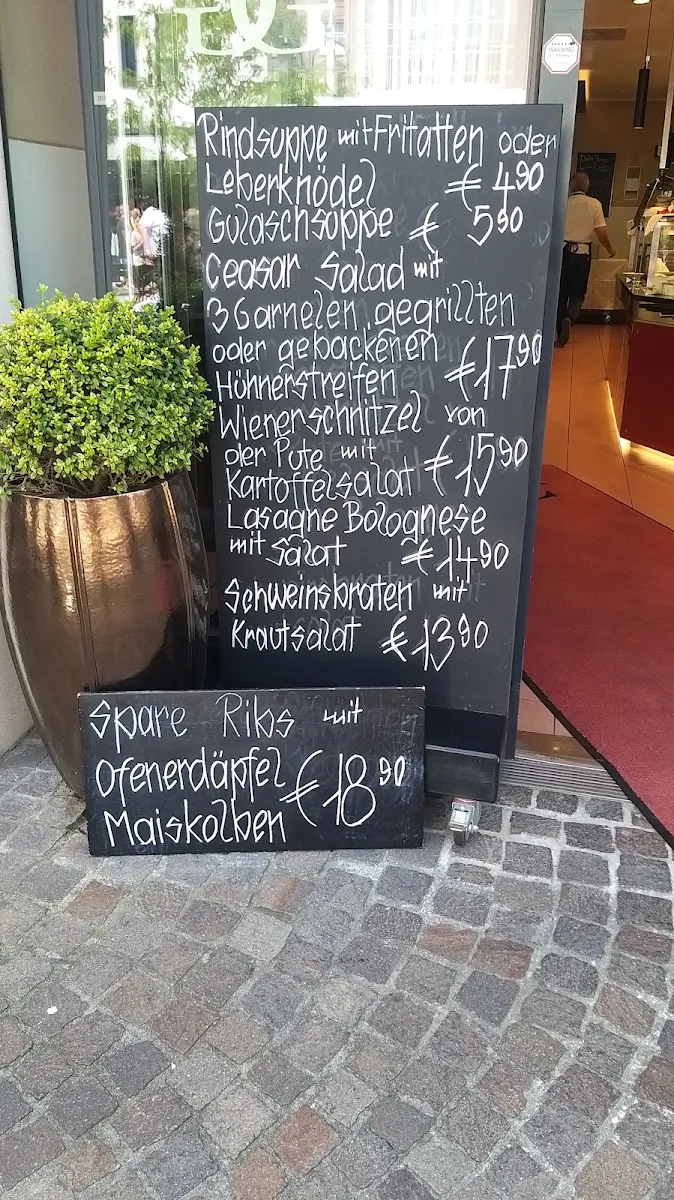 WARNING
Rindsuppe mit Fritatten oder
Leberknödel € 4,90
Gulaschsuppe € 5,90
Ceasar Salad mit
3 Garnelen gegrillten
oder gebackenen
Hühnerstreifen € 17,90
Wienerschnitzel von
der Pute mit
Kartoffelsalat € 15,90
Lasagne Bolognese
mit Salat € 14,90
Schweinsbraten mit
Krautsalat € 13,90
Spare Ribs mit
Ofenerdäpfel
Maiskolben € 18,90